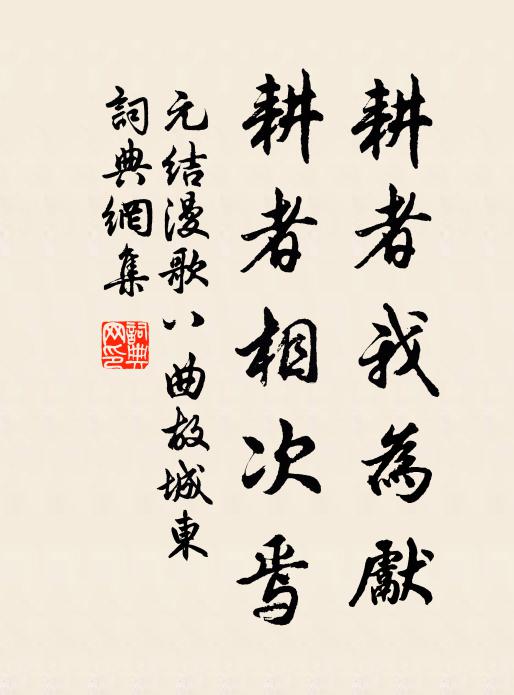 耕者我為獻
耕者相次焉
元结漫歌八曲故城東
詞典網集
詞典网印